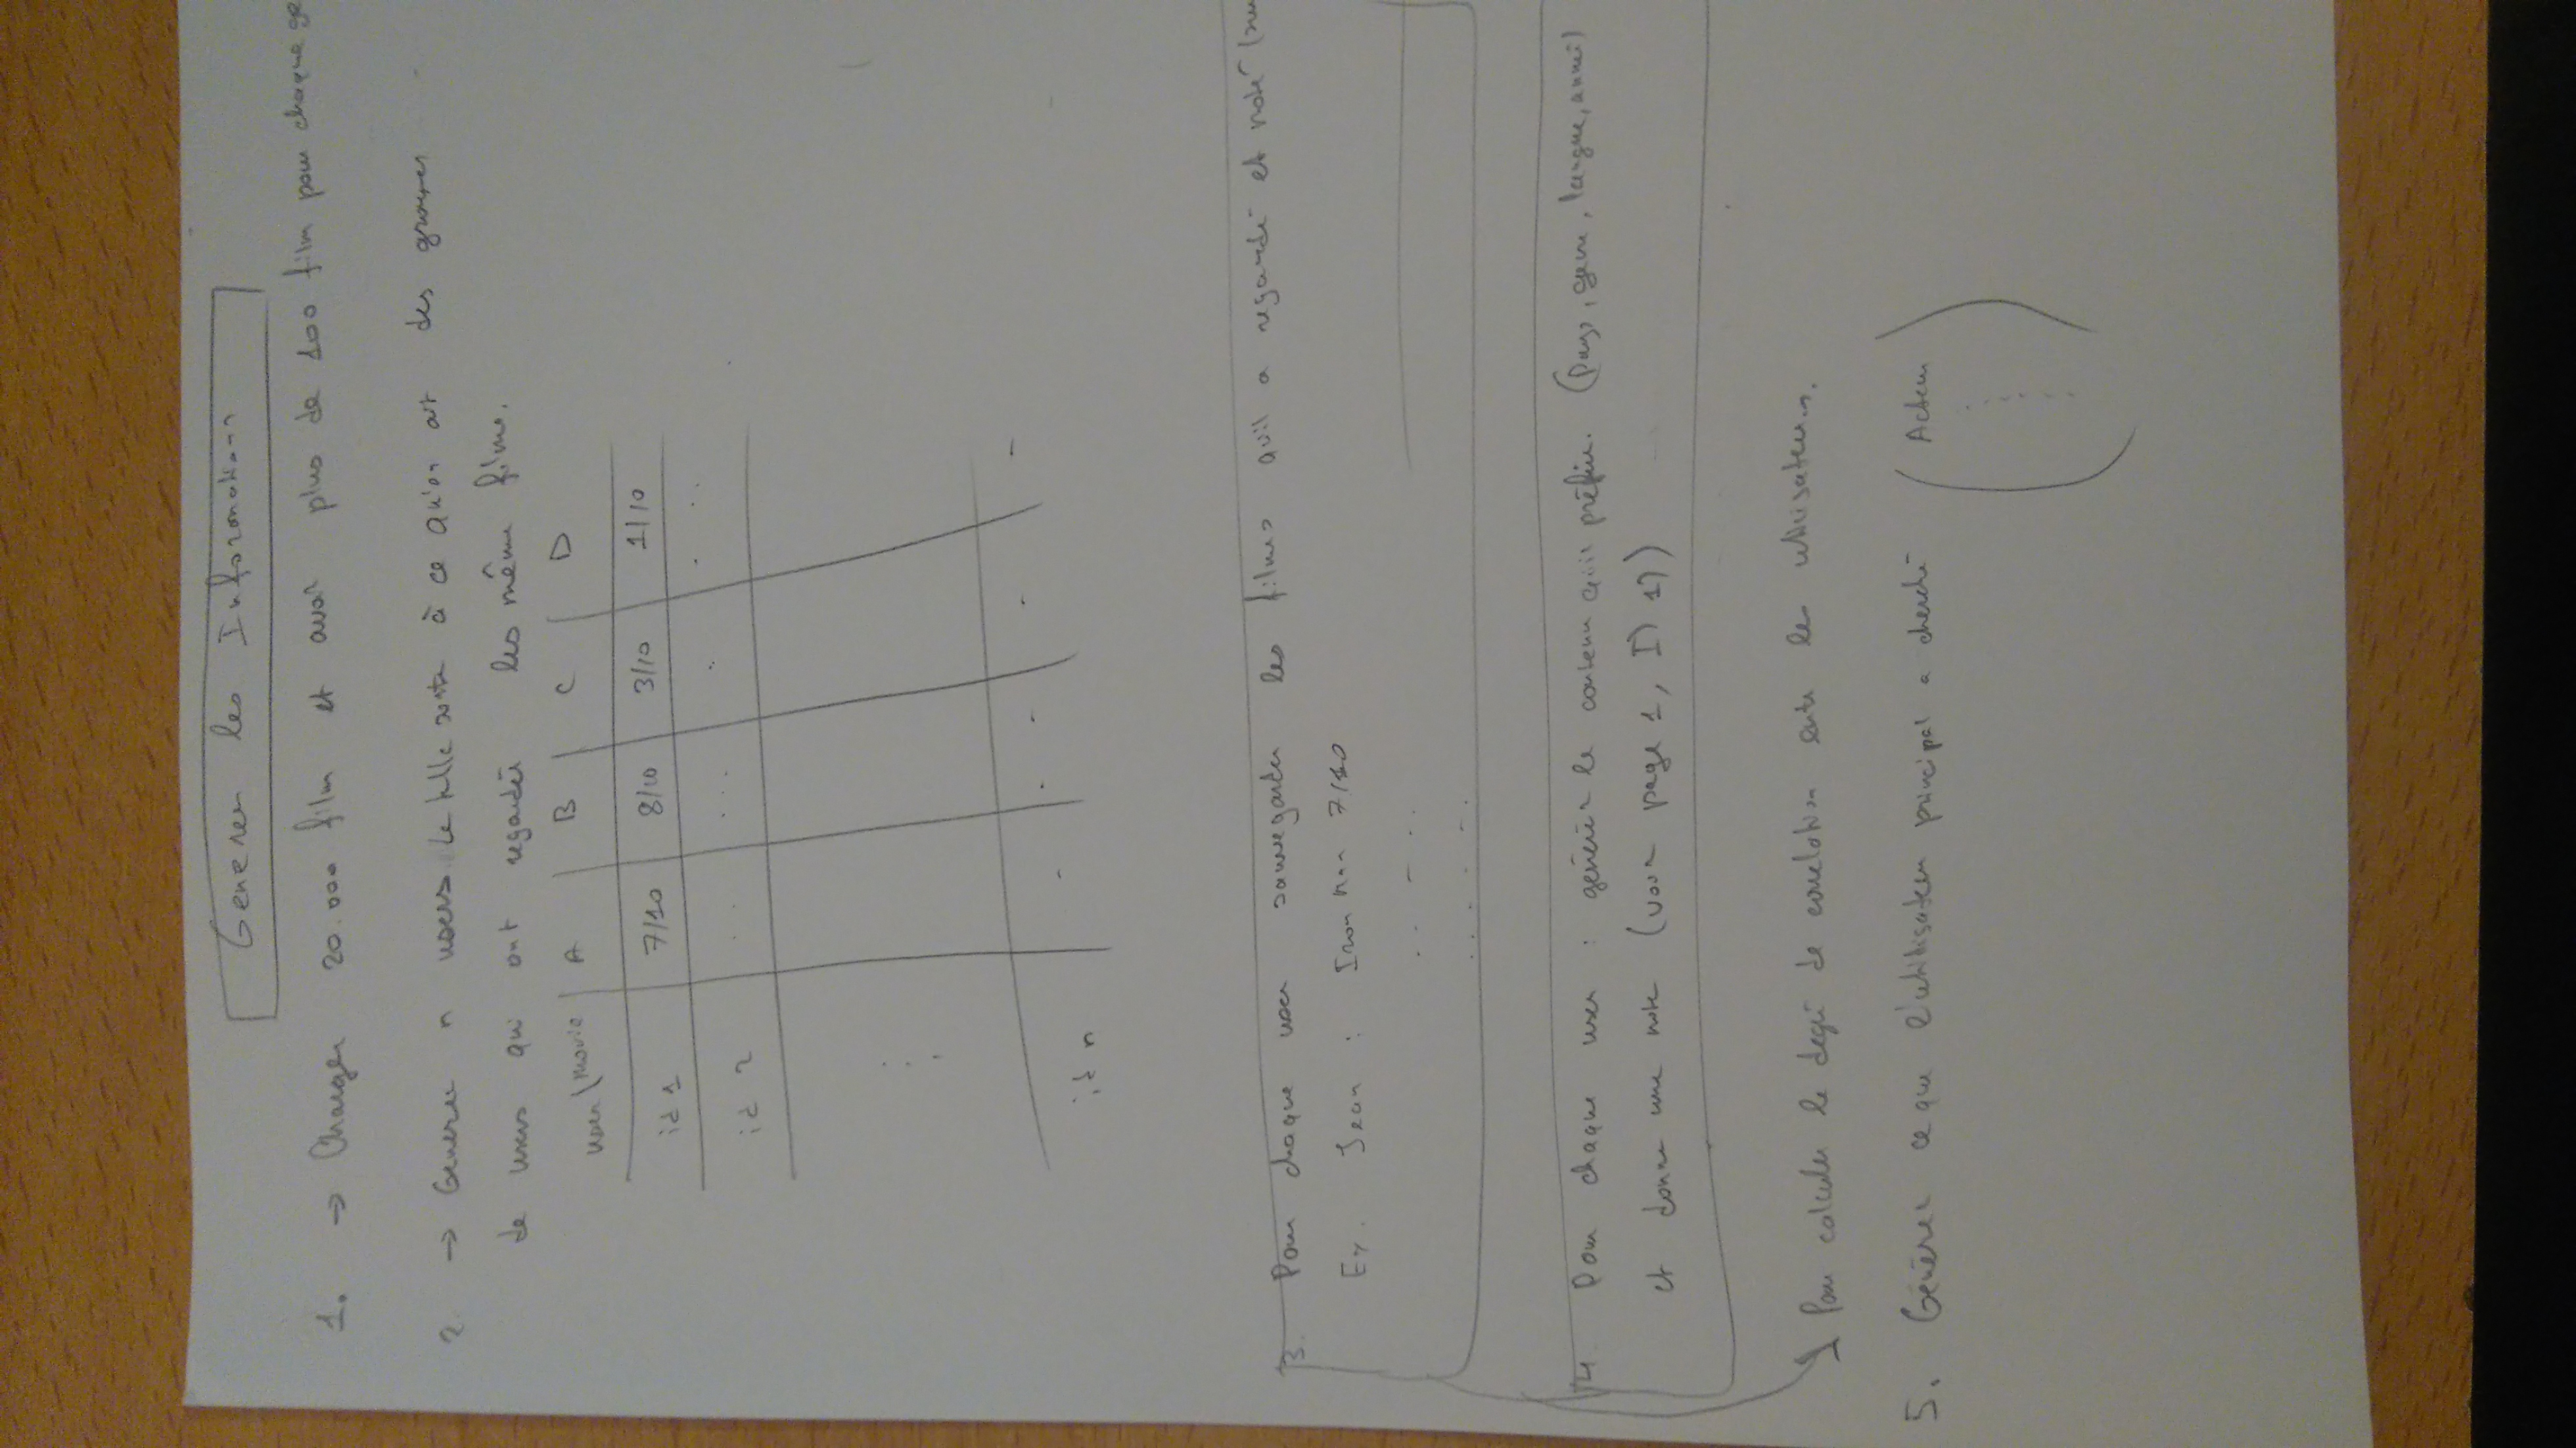 Generer les Informations
1. → Charger 20.000 film et avoir plus de 100 film pour chaque ge
2. → Generer n users de telle sorte à ce qu'on ait des groupes
de users qui ont regardé les même films.
user \ Movie A B C D
id 1 7/10 8/10 3/10 1/10
id 2 .. ... .. ...
id n
3. Pour chaque user sauvegarder les films qu'il a regardé et noté
Ex. Jean : Iron Man 7/10
4. Pour chaque user : générer le contenu qu'il préfère. (Pays, genre, langue, année)
et donne une note (voir page 1, I) 1))
Pour calculer le degré de corrélation entre les utilisateurs.
5. Générer ce que l'utilisateur principal a cherché ( Acteur )